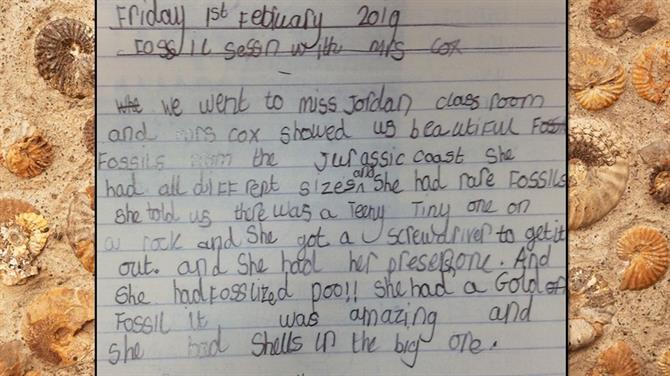 Friday 1st February 2019
Fossil sessn with mrs cox
we went to miss Jordan class room
and mrs cox showed us beautiful
Fossils from the Jurassic coast She
had all diffrent sizes and She had rare Fossils
She told us there was a Teeny Tiny one on
a rock and She got a screwdriver to get it
out. and She had her preseBone. And
She had Fosslized poo!! She had a Gold
Fossil it was amazing and
She had Shells in the big one.